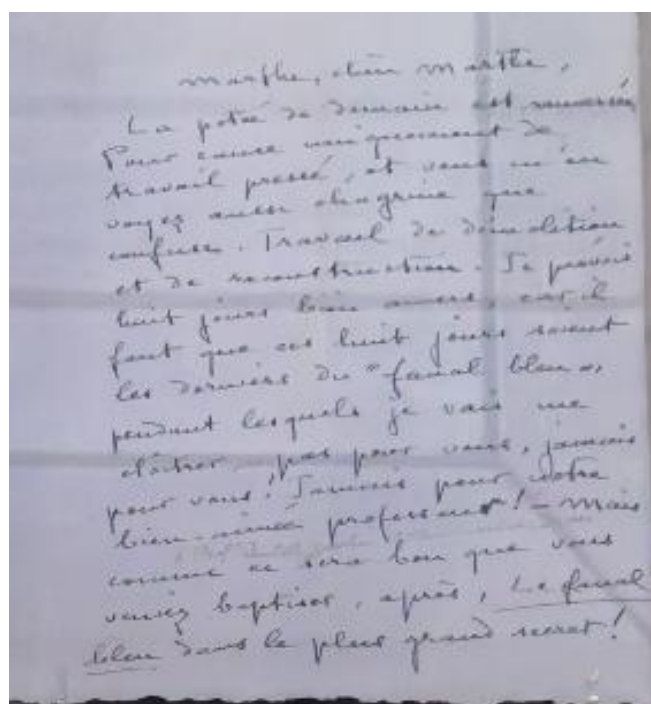 Marthe, chère Marthe,
La potée de demain est renversée
Pour cause uniquement de
travail pressé, et vous m'en
voyez aussi chagrine que
confuse. Travail de démolition
et de reconstruction. Je prévois
huit jours bien amers, car il
faut que ces huit jours soient
les derniers du "fanal bleu",
pendant lesquels je vais me
cloîtrer, pas pour vous, jamais
pour vous! Jamais pour notre
bien-aimé professeur! — Mais
comme ce sera bon que vous
veniez baptiser, après, Le fanal
bleu dans le plus grand secret!